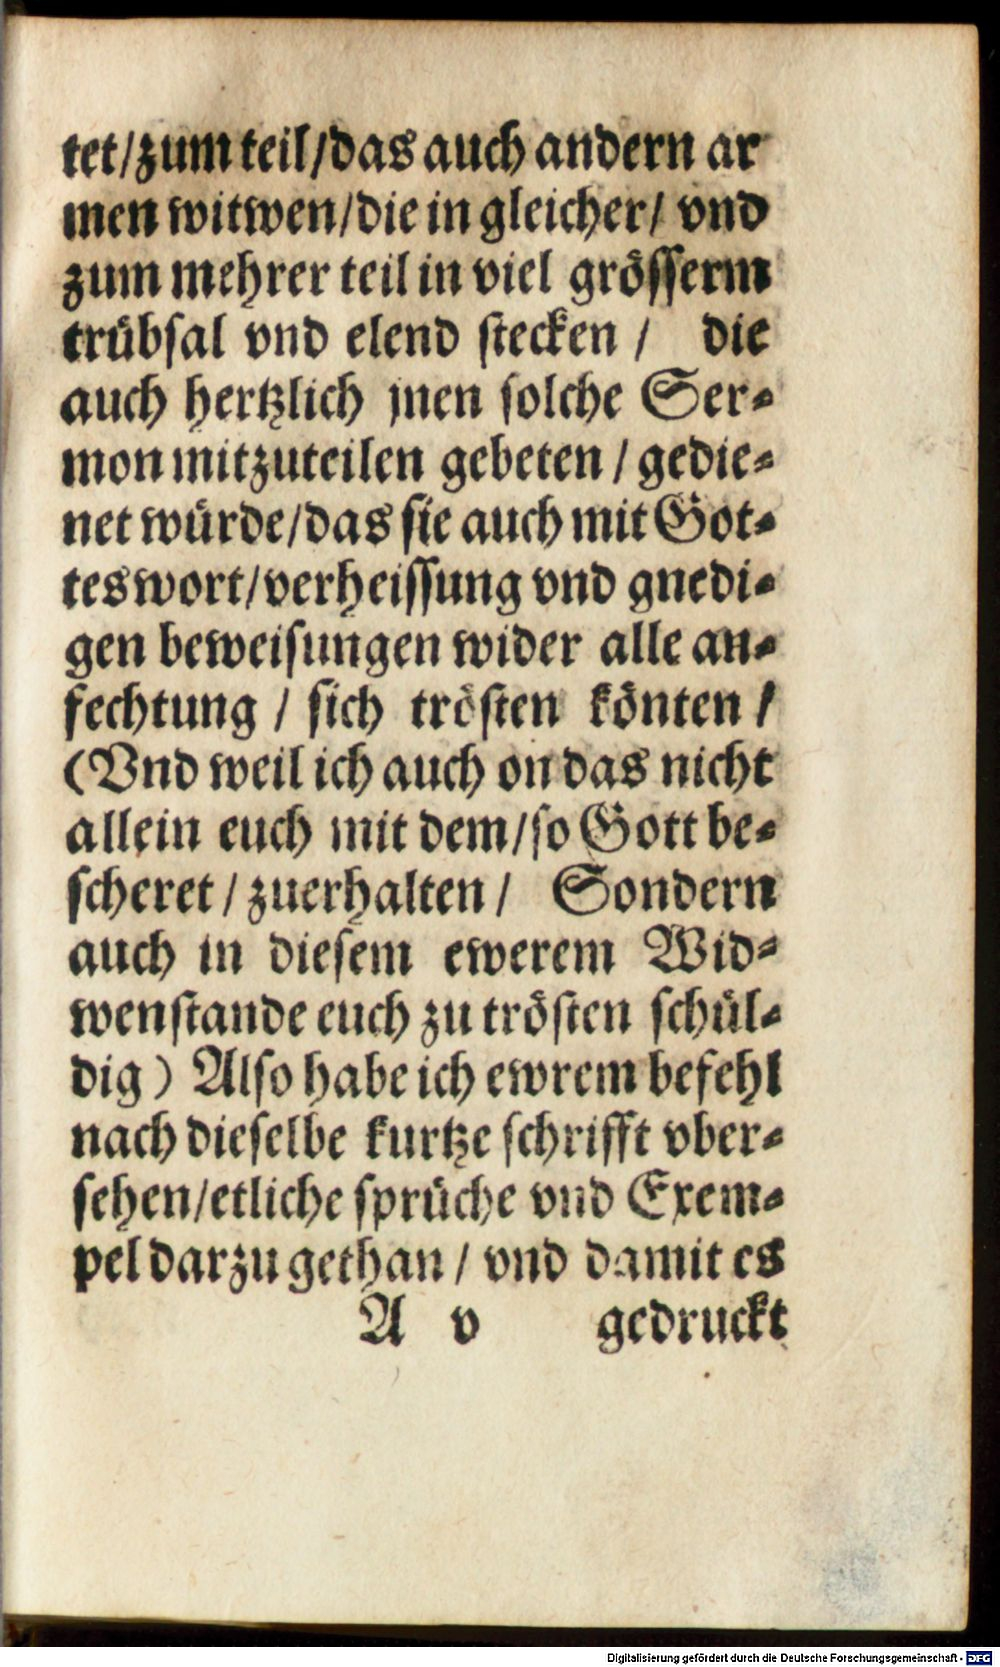 tet/zum teil/das auch andern ar
men witwen/die in gleicher/ vnd
zum mehrer teil in viel grösserm
trübsal vnd elend stecken / die
auch hertzlich jnen solche Ser-
mon mitzuteilen gebeten / gedie-
net würde/das sie auch mit Got-
tes wort/verheissung vnd gnedi-
gen beweisungen wider alle an-
fechtung / sich trösten könten /
(Vnd weil ich auch on das nicht
allein euch mit dem/so Gott be-
scheret / zuerhalten / Sondern
auch in diesem ewerem Wid-
wenstande euch zu trösten schül-
dig) Also habe ich ewrem befehl
nach dieselbe kurtze schrifft vber-
sehen/etliche sprüche vnd Exem-
pel darzu gethan / vnd damit es
A v gedruckt
Digitalisierung gefördert durch die Deutsche Forschungsgemeinschaft - DFG